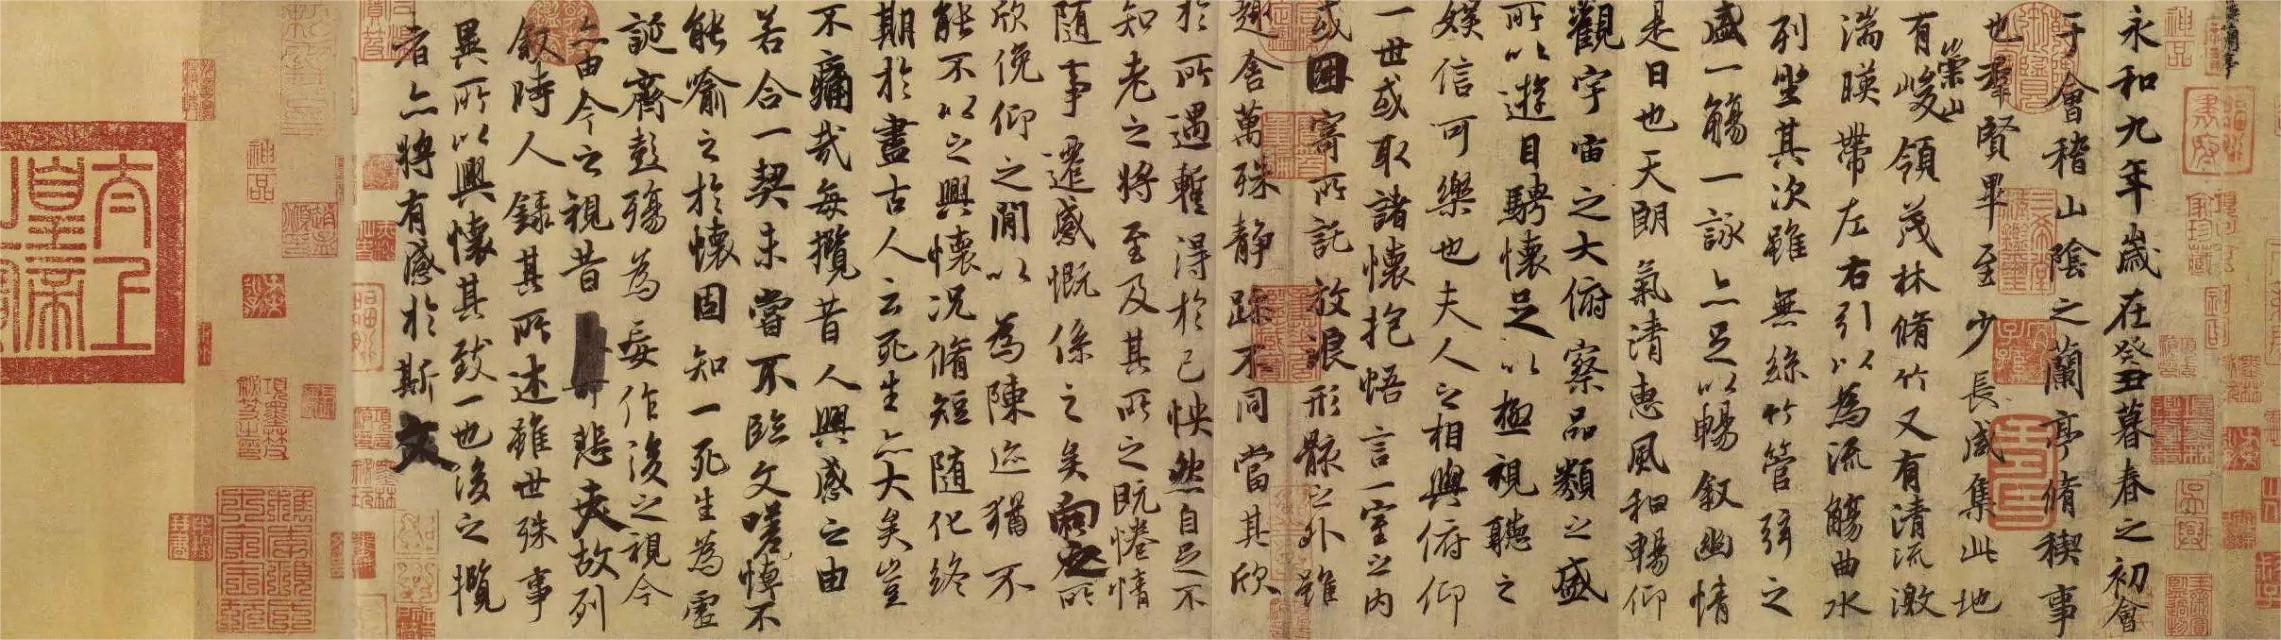 神品
永和九年歲在癸丑暮春之初會
于會稽山陰之蘭亭脩稧事
也羣賢畢至少長咸集此地
有崇山峻領茂林脩竹又有清流激
湍暎帶左右引以為流觴曲水
列坐其次雖無絲竹管弦之
盛一觴一詠亦足以暢叙幽情
是日也天朗氣清惠風和暢仰
觀宇宙之大俯察品類之盛
所以遊目騁懷足以極視聽之
娛信可樂也夫人之相與俯仰
一世或取諸懷抱悟言一室之內
或因寄所託放浪形骸之外雖
趣舍萬殊静躁不同當其欣
於所遇暫得於己怏然自足不
知老之將至及其所之既惓情
隨事遷感慨係之矣向之所
欣俛仰之閒以為陳迹猶不
能不以之興懷況脩短隨化終
期於盡古人云死生亦大矣豈
不痛哉每攬昔人興感之由
若合一契未嘗不臨文嗟悼不
能喻之於懷固知一死生為虛
誕齊彭殤為妄作後之視今
亦由今之視昔悲夫故列
叙時人錄其所述雖世殊事
異所以興懷其致一也後之攬
者亦將有感於斯文
神品
太上
皇帝